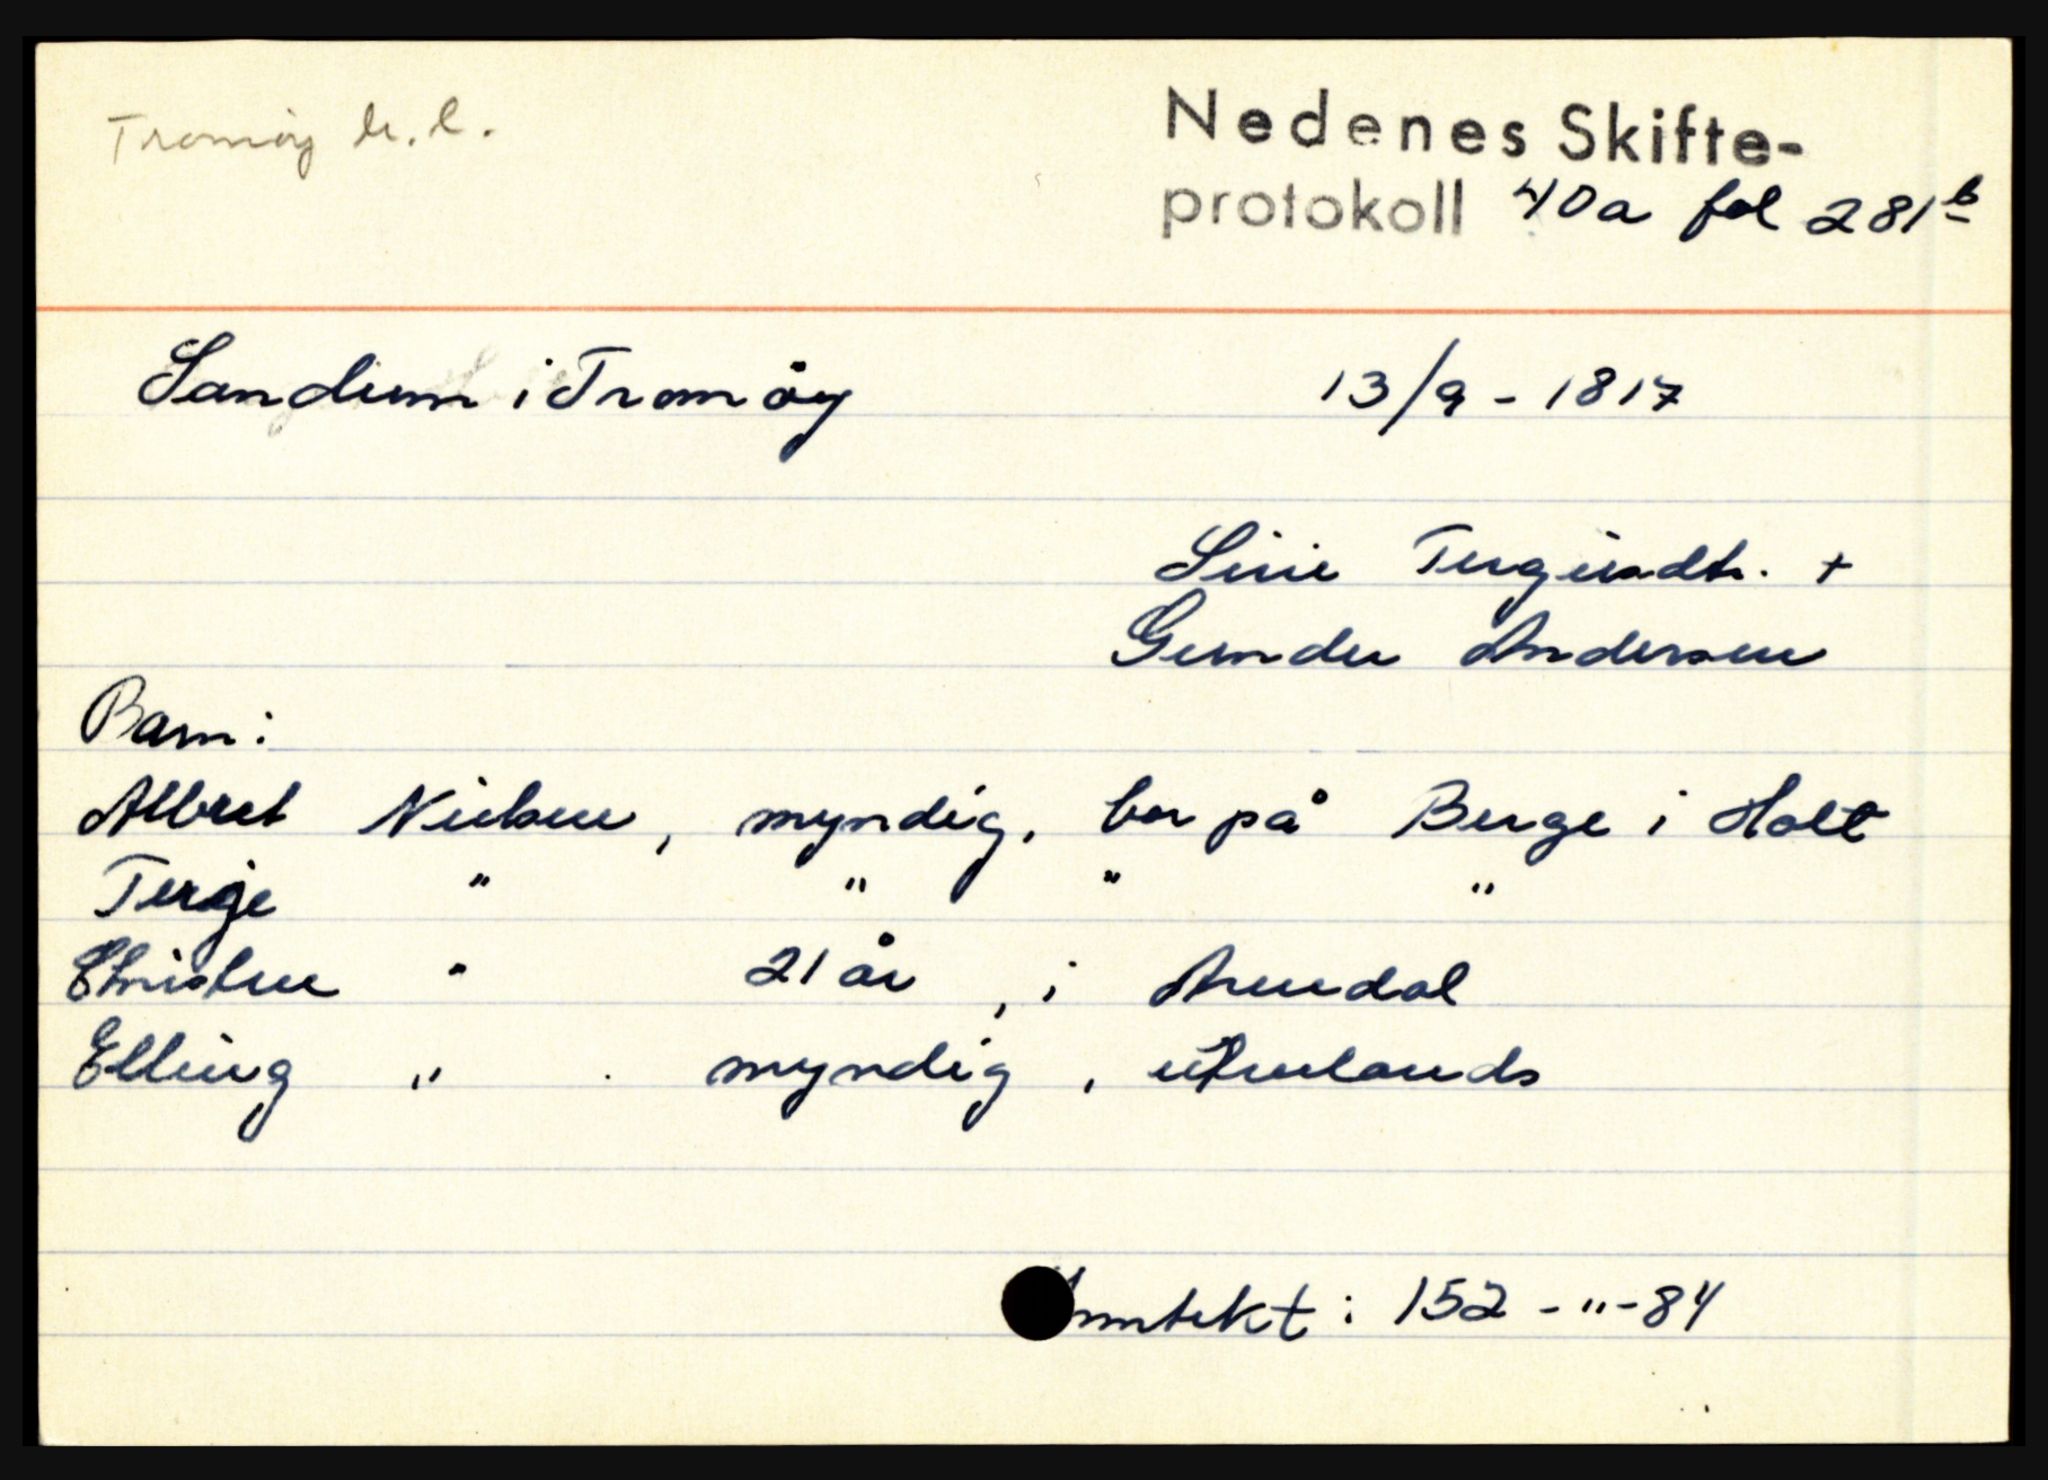 Tromöy h.l.
Nedenes Skifte-
protokoll 40a fol 281b
Sandum i Tromöy 13/9 - 1817
Sirie Tergiusdtr. +
Gunder Andersen
Barn:
Albret Nielsen, myndig, bor på Berge i Holt
Terje " " " "
Christen " 21 år, i Arendal
Elling " myndig, utenlands
Inntekt: 152 - " - 84